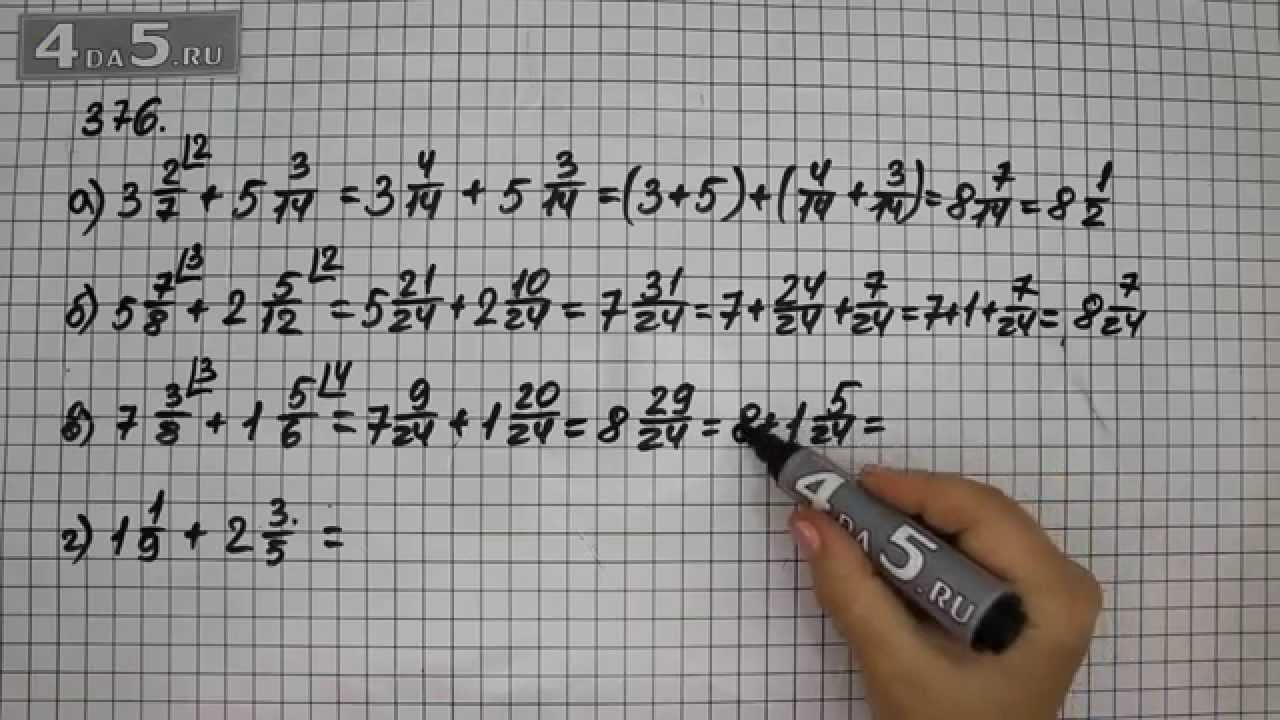 4DA5.RU
376.
а) 3 2/7 ⌊2 + 5 3/14 = 3 4/14 + 5 3/14 = (3+5) + (4/14 + 3/14) = 8 7/14 = 8 1/2
б) 5 7/8 ⌊3 + 2 5/12 ⌊2 = 5 21/24 + 2 10/24 = 7 31/24 = 7 + 24/24 + 7/24 = 7+1+ 7/24 = 8 7/24
в) 7 3/8 ⌊3 + 1 5/6 ⌊4 = 7 9/24 + 1 20/24 = 8 29/24 = 8 + 1 5/24 =
г) 1 1/9 + 2 3/5 =
4DA5.RU